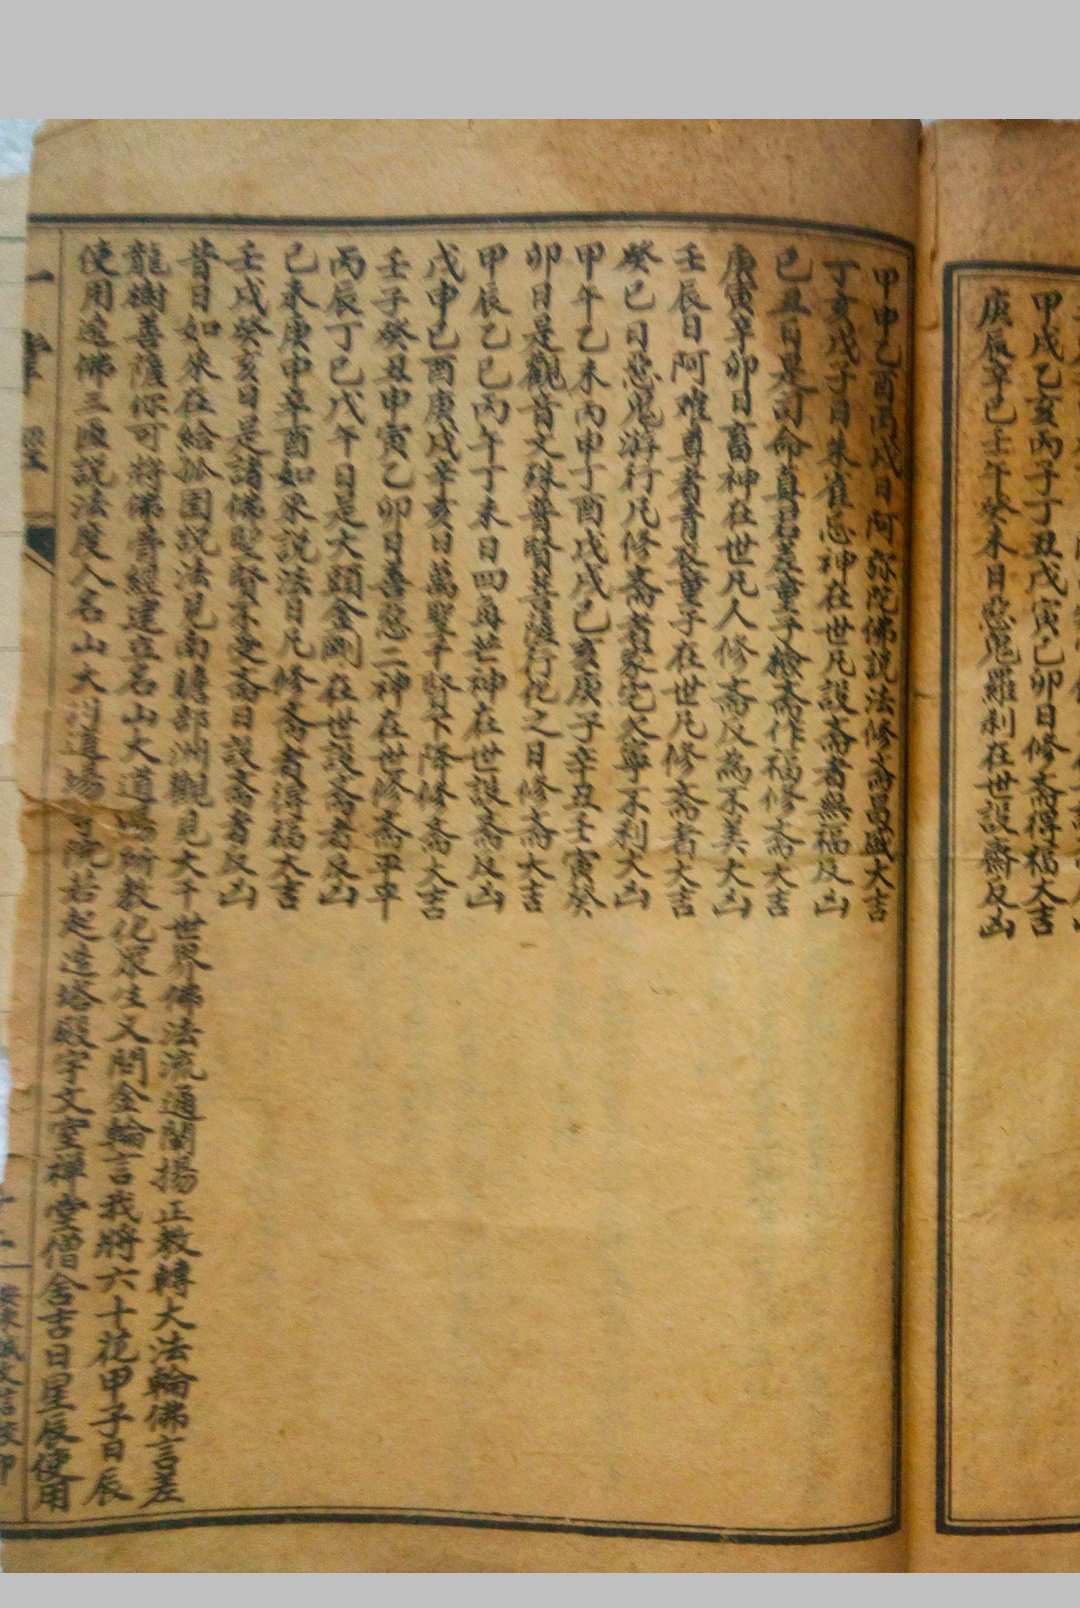 甲戌乙亥丙子丁丑戊寅己卯日修斋得福大吉
庚辰辛巳壬午癸未日惡鬼羅刹在世設齋反凶
甲申乙酉丙戌日阿弥陀佛説法修斋昌盛大吉
丁亥戊子日朱雀惡神在世凡設斋者無福反凶
己丑日是司命真君差童子檢斋作福修斋大吉
庚寅辛卯日畜神在世凡人修斋反為不美大凶
壬辰日阿难尊者青衣童子在世凡修斋者大吉
癸巳日惡鬼游行凡修斋者家宅欠寧不利大凶
甲午乙未丙申丁酉戊戌己亥庚子辛丑壬寅癸
卯日是觀音文殊普賢菩薩行化之日修斋大吉
甲辰乙巳丙午丁未日四毒芒神在世設斋反凶
戊申己酉庚戌辛亥日萬聖千賢下降修斋大吉
壬子癸丑甲寅乙卯日善惡二神在世修斋平平
丙辰丁巳戊午日是大頭金剛在世設斋者反凶
己未庚申辛酉如來説法日凡修斋者得福大吉
壬戌癸亥日是諸佛聖賢不受斋日設斋者反凶
昔日如來在給孤園説法見南瞻部洲觀見大千世界佛法流通闡揚正教轉大法輪佛言差
龍樹菩薩你可將佛骨經建立名山大道場所教化眾生又問金輪言我將六十花甲子日辰
使用遶佛三匝説法度人名山大道場院若起造塔殿宇文室禅堂僧舍吉日星辰使用